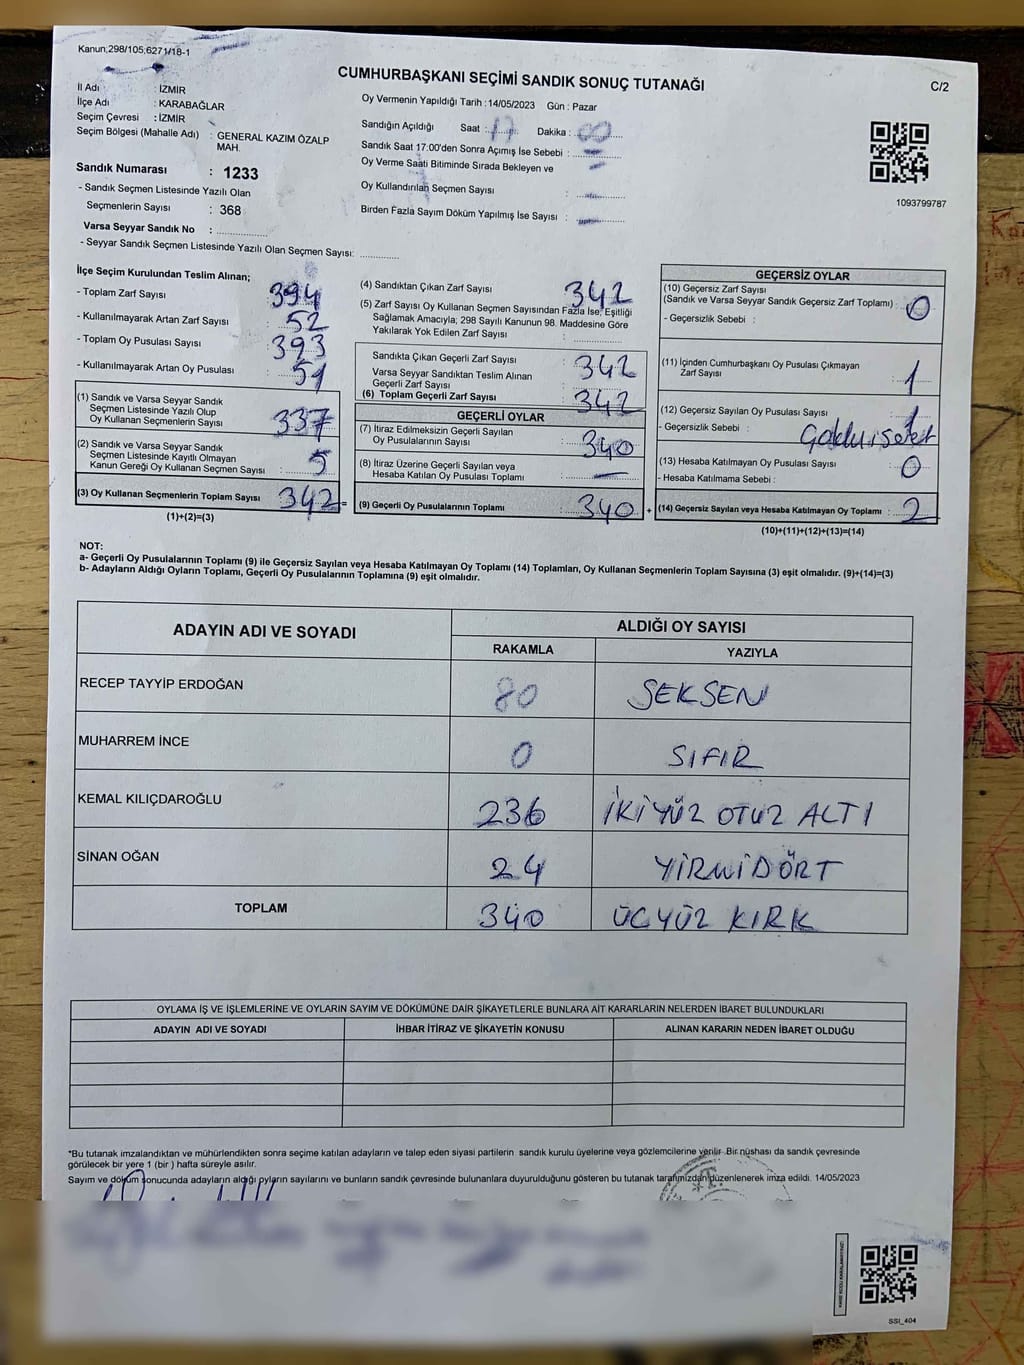 Kanun;298/105;6271/18-1
CUMHURBAŞKANI SEÇİMİ SANDIK SONUÇ TUTANAĞI
C/2
İl Adı : İZMİR
İlçe Adı : KARABAĞLAR
Seçim Çevresi : İZMİR
Seçim Bölgesi (Mahalle Adı) : GENERAL KAZIM ÖZALP
MAH.
Sandık Numarası : 1233
- Sandık Seçmen Listesinde Yazılı Olan
Seçmenlerin Sayısı : 368
Varsa Seyyar Sandık No :
- Seyyar Sandık Seçmen Listesinde Yazılı Olan Seçmen Sayısı:
Oy Vermenin Yapıldığı Tarih : 14/05/2023 Gün : Pazar
Sandığın Açıldığı Saat : 17 Dakika : 00
Sandık Saat 17:00'den Sonra Açımış İse Sebebi : -
Oy Verme Saati Bitiminde Sırada Bekleyen ve
Oy Kullandırılan Seçmen Sayısı : -
Birden Fazla Sayım Döküm Yapılmış İse Sayısı : -
1093799787
İlçe Seçim Kurulundan Teslim Alınan;
- Toplam Zarf Sayısı : 394
- Kullanılmayarak Artan Zarf Sayısı : 52
- Toplam Oy Pusulası Sayısı : 393
- Kullanılmayarak Artan Oy Pusulası : 51
(1) Sandık ve Varsa Seyyar Sandık
Seçmen Listesinde Yazılı Olup
Oy Kullanan Seçmenlerin Sayısı : 337
(2) Sandık ve Varsa Seyyar Sandık
Seçmen Listesinde Kayıtlı Olmayan
Kanun Gereği Oy Kullanan Seçmen Sayısı : 5
(3) Oy Kullanan Seçmenlerin Toplam Sayısı : 342 =
(1)+(2)=(3)
(4) Sandıktan Çıkan Zarf Sayısı : 342
(5) Zarf Sayısı Oy Kullanan Seçmen Sayısından Fazla İse, Eşitliği
Sağlamak Amacıyla; 298 Sayılı Kanunun 98. Maddesine Göre
Yakılarak Yok Edilen Zarf Sayısı :
Sandıkta Çıkan Geçerli Zarf Sayısı : 342
Varsa Seyyar Sandıktan Teslim Alınan
Geçerli Zarf Sayısı :
(6) Toplam Geçerli Zarf Sayısı : 342
GEÇERLİ OYLAR
(7) İtiraz Edilmeksizin Geçerli Sayılan
Oy Pusulalarının Sayısı : 340
(8) İtiraz Üzerine Geçerli Sayılan veya
Hesaba Katılan Oy Pusulası Toplamı : -
(9) Geçerli Oy Pusulalarının Toplamı : 340 +
GEÇERSİZ OYLAR
(10) Geçersiz Zarf Sayısı
(Sandık ve Varsa Seyyar Sandık Geçersiz Zarf Toplamı) : 0
- Geçersizlik Sebebi :
(11) İçinden Cumhurbaşkanı Oy Pusulası Çıkmayan
Zarf Sayısı : 1
(12) Geçersiz Sayılan Oy Pusulası Sayısı : 1
- Geçersizlik Sebebi :
(13) Hesaba Katılmayan Oy Pusulası Sayısı : 0
- Hesaba Katılmama Sebebi :
(14) Geçersiz Sayılan veya Hesaba Katılmayan Oy Toplamı : 2
(10)+(11)+(12)+(13)=(14)
NOT:
a- Geçerli Oy Pusulalarının Toplamı (9) ile Geçersiz Sayılan veya Hesaba Katılmayan Oy Toplamı (14) Toplamları, Oy Kullanan Seçmenlerin Toplam Sayısına (3) eşit olmalıdır. (9)+(14)=(3)
b- Adayların Aldığı Oyların Toplamı, Geçerli Oy Pusulalarının Toplamına (9) eşit olmalıdır.
ADAYIN ADI VE SOYADI ALDIĞI OY SAYISI
RAKAMLA YAZIYLA
RECEP TAYYİP ERDOĞAN 80 SEKSEN
MUHARREM İNCE 0 SIFIR
KEMAL KILIÇDAROĞLU 236 İKİYÜZ OTUZ ALTI
SİNAN OĞAN 24 YİRMİDÖRT
TOPLAM 340 ÜCYÜZ KIRK
OYLAMA İŞ VE İŞLEMLERİNE VE OYLARIN SAYIM VE DÖKÜMÜNE DAİR ŞİKAYETLERLE BUNLARA AİT KARARLARIN NELERDEN İBARET BULUNDUKLARI
ADAYIN ADI VE SOYADI İHBAR İTİRAZ VE ŞİKAYETİN KONUSU ALINAN KARARIN NEDEN İBARET OLDUĞU
*Bu tutanak imzalandıktan ve mühürlendikten sonra seçime katılan adayların ve talep eden siyasi partilerin sandık kurulu üyelerine veya gözlemcilerine verilir. Bir nüshası da sandık çevresinde
görülecek bir yere 1 (bir ) hafta süreyle asılır.
Sayım ve döküm sonucunda adayların aldığı oyların sayılarını ve bunların sandık çevresinde bulunanlara duyurulduğunu gösteren bu tutanak tarafımızdan düzenlenerek imza edildi. 14/05/2023
SSI_404